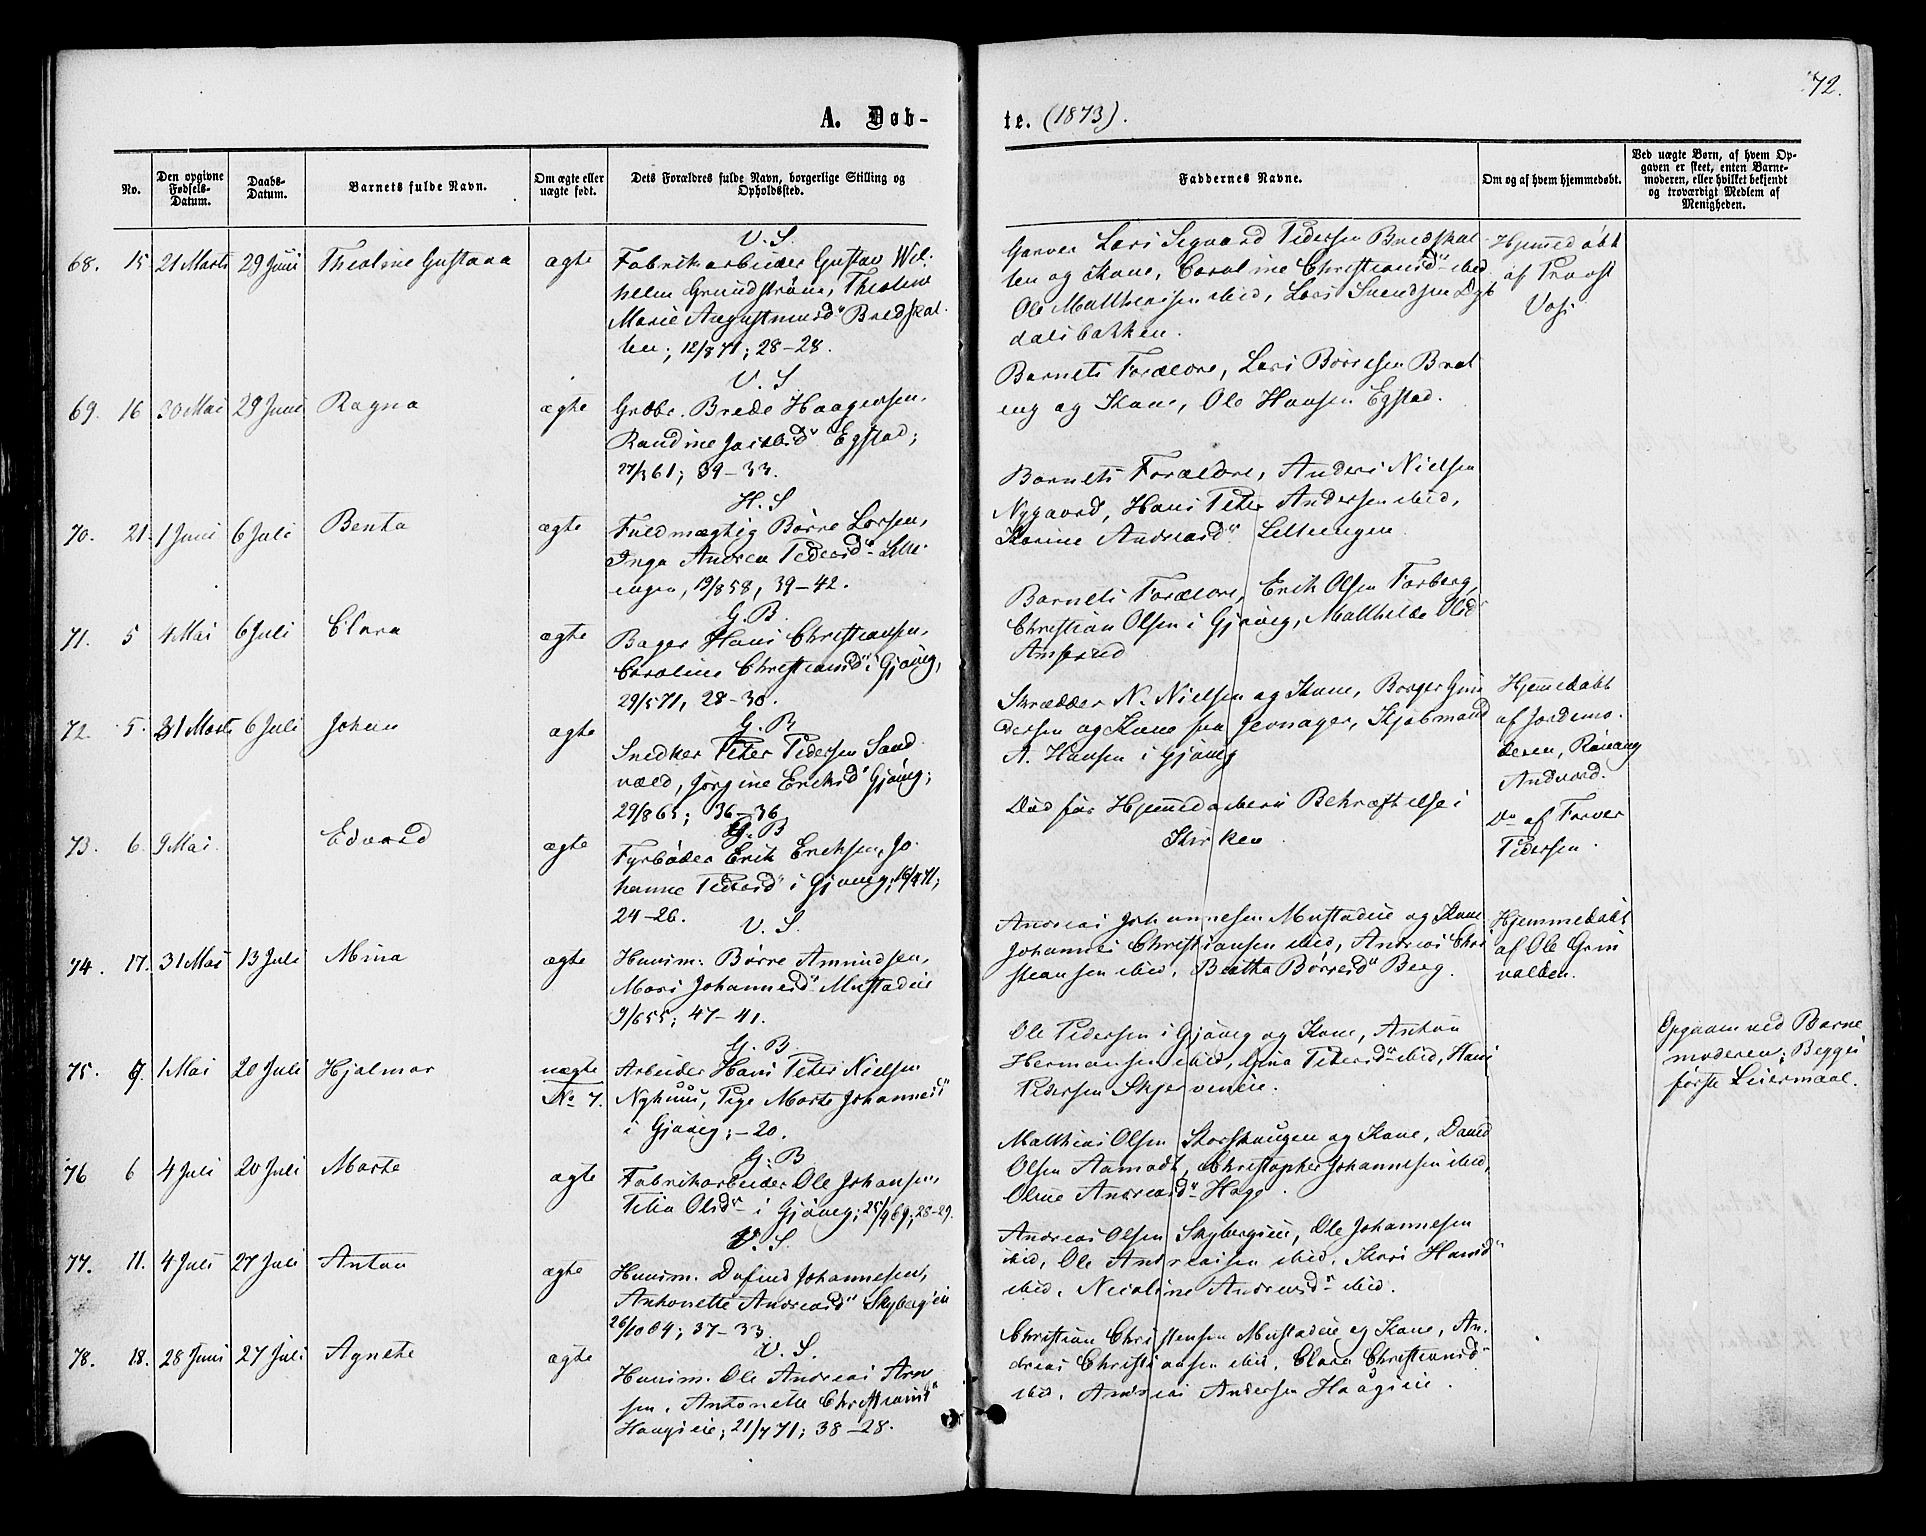 72.
A. Døb-
te. (1873).
No.
Den opgivne Fødsels-Datum.
Daabs-Datum.
Barnets fulde Navn.
Om ægte eller uægte født.
Dets Forældres fulde Navn, borgerlige Stilling og Opholdssted.
Faddernes Navne.
Om og af hvem hjemmedøbt.
Ved uægte Børn, af hvem Opgaven er skeet, enten Barnemoderen, eller hvilket bekjendt og troværdigt Medlem af Menigheden.
V. S.
68. 15 21 Marts 29 Juni Theoline Gustava ægte Fabrikarbeider Gustav Wil-
helm Grundstrøm, Theoline
Marie Augustinusd Bredskal-
len; 12/8 71; 28-28.
Garver Lars Sigvard Pedersen Bredskal-
len og Kone, Caroline Christiansd ibid
Ole Mathiesen ibid, Lars Svendsen
dalsbakken.
Hjemmedøbt
af Provst
V. S.
69. 16 30 Mai 29 Juni Ragna ægte Grdbr. Brede Haagensen,
Randine Jacobsd Egstad;
61; 39-33.
Barnets Forældre, Lars Børresen Brat-
eng og Kone, Ole Hansen Egstad.
H. S
70. 21. 1 Juni 6 Juli Benta ægte Fuldmægtig Børre Larsen,
Inga Andrea Pedersd Lille-
engen, 19/8 58, 39-42.
Barnets Forældre, Anders Nielsen
Nygaard, Hans Peter Andersen ibid,
Karine Andreasd Lilleengen
G. B.
71. 5 4 Mai 6 Juli Clara ægte Bager Hans Christiansen,
Caroline Christiansd i Gjøvig,
29/5 71, 28-30.
Barnets Forældre, Erik Olsen Farberg,
Christian Olsen i Gjøvig, Mathilde Olsd
G. B
72. 5. 31 Marts 6 Juli Johan ægte Snedker Peter Pedersen Sand
vold, Jørgine Eriksd Gjøvig;
29/8 65; 36-36
Skrædder N. Nielsen og Kone, Borger Gun
dersen og Kone fra Jevnager, Kjøbmand
A. Hansen i Gjøvig
Hjemmedøbt
af Jordemo-
deren,
G. B
73. 6. 9 Mai. Edvard ægte Fyrbøder Erik Eriksen, Jo-
hanne Pedersd i Gjøvig; 71;
24-26.
Død før Hjemmedaabens Bekræftelse i
Kirken
Do af Farver
Pedersen.
V. S.
74. 17. 31 Mai 13 Juli Mina ægte Huusm. Børre Amundsen,
Mari Johannesd Mustadeie
9/6 55; 47-41.
Andreas Johannesen Mustadeie og Kone
Johannes Christiansen ibid, Andreas Chri
stiansen ibid, Beatha Børresd Berg.
Hjemmedøbt
af Ole Grin
valden.
G. B.
75. 9. 1 Mai 20 Juli Hjalmar uægte Arbeider Hans Peter Nielsen
No 7. Nyhuus, Pige Marte Johannesd
i Gjøvig; -20.
Ole Pedersen i Gjøvig og Kone, Anton
Hermansen ibid, Dina Petersd ibid, Hans
Pedersen Skjerveneie.
Opgaven ved Barne
moderen; Begges
første Leiermaal.
G. B
76 6 4 Juli 20 Juli Marte ægte Fabrikarbeider Ole Johansen,
Olsd i Gjøvig; 25/9 69; 28-29.
Mathias Olsen Korshaugen og Kone, David
Olsen Aamodt, Christopher Johannesen ibid,
Oline Andreasd
V. S.
77. 11. 4 Juli 27 Juli Anton ægte Huusm. Dafind Johannesen,
Antonette Andreasd Skybergeie
26/10 64; 37-33.
Andreas Olsen Skybergeie, Ole Johannesen
ibid, Ole Andreasen ibid, Kari Hansd
ibid, Nicoline Andreasd ibid.
V. S.
78. 18. 28 Juni 27 Juli Agnethe ægte Huusm. Ole Andreas Arne
sen, Antonette Christiansd
Haugseie; 21/7 71; 38-28.
Christian Christensen Mustadeie og Kone, An-
dreas Christiansen ibid, Clara Christiansd
ibid, Andreas Andersen Haugseie.